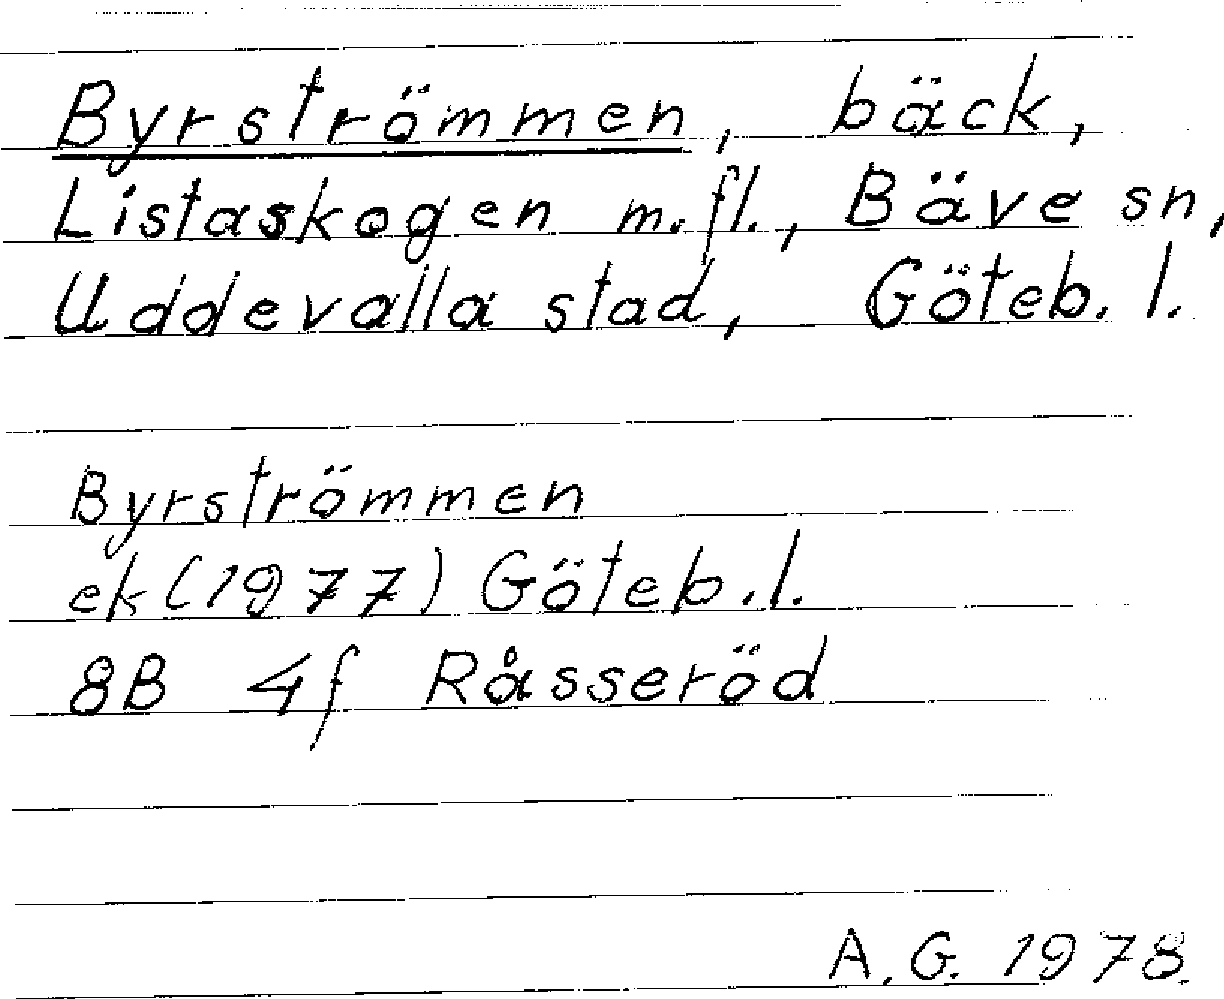 Byrströmmen, bäck,
Listaskogen m.fl., Bäve sn,
Uddevalla stad, Göteb. l.
Byrströmmen
ek (1977) Göteb. l.
8B 4f Råsseröd
A.G. 1978.